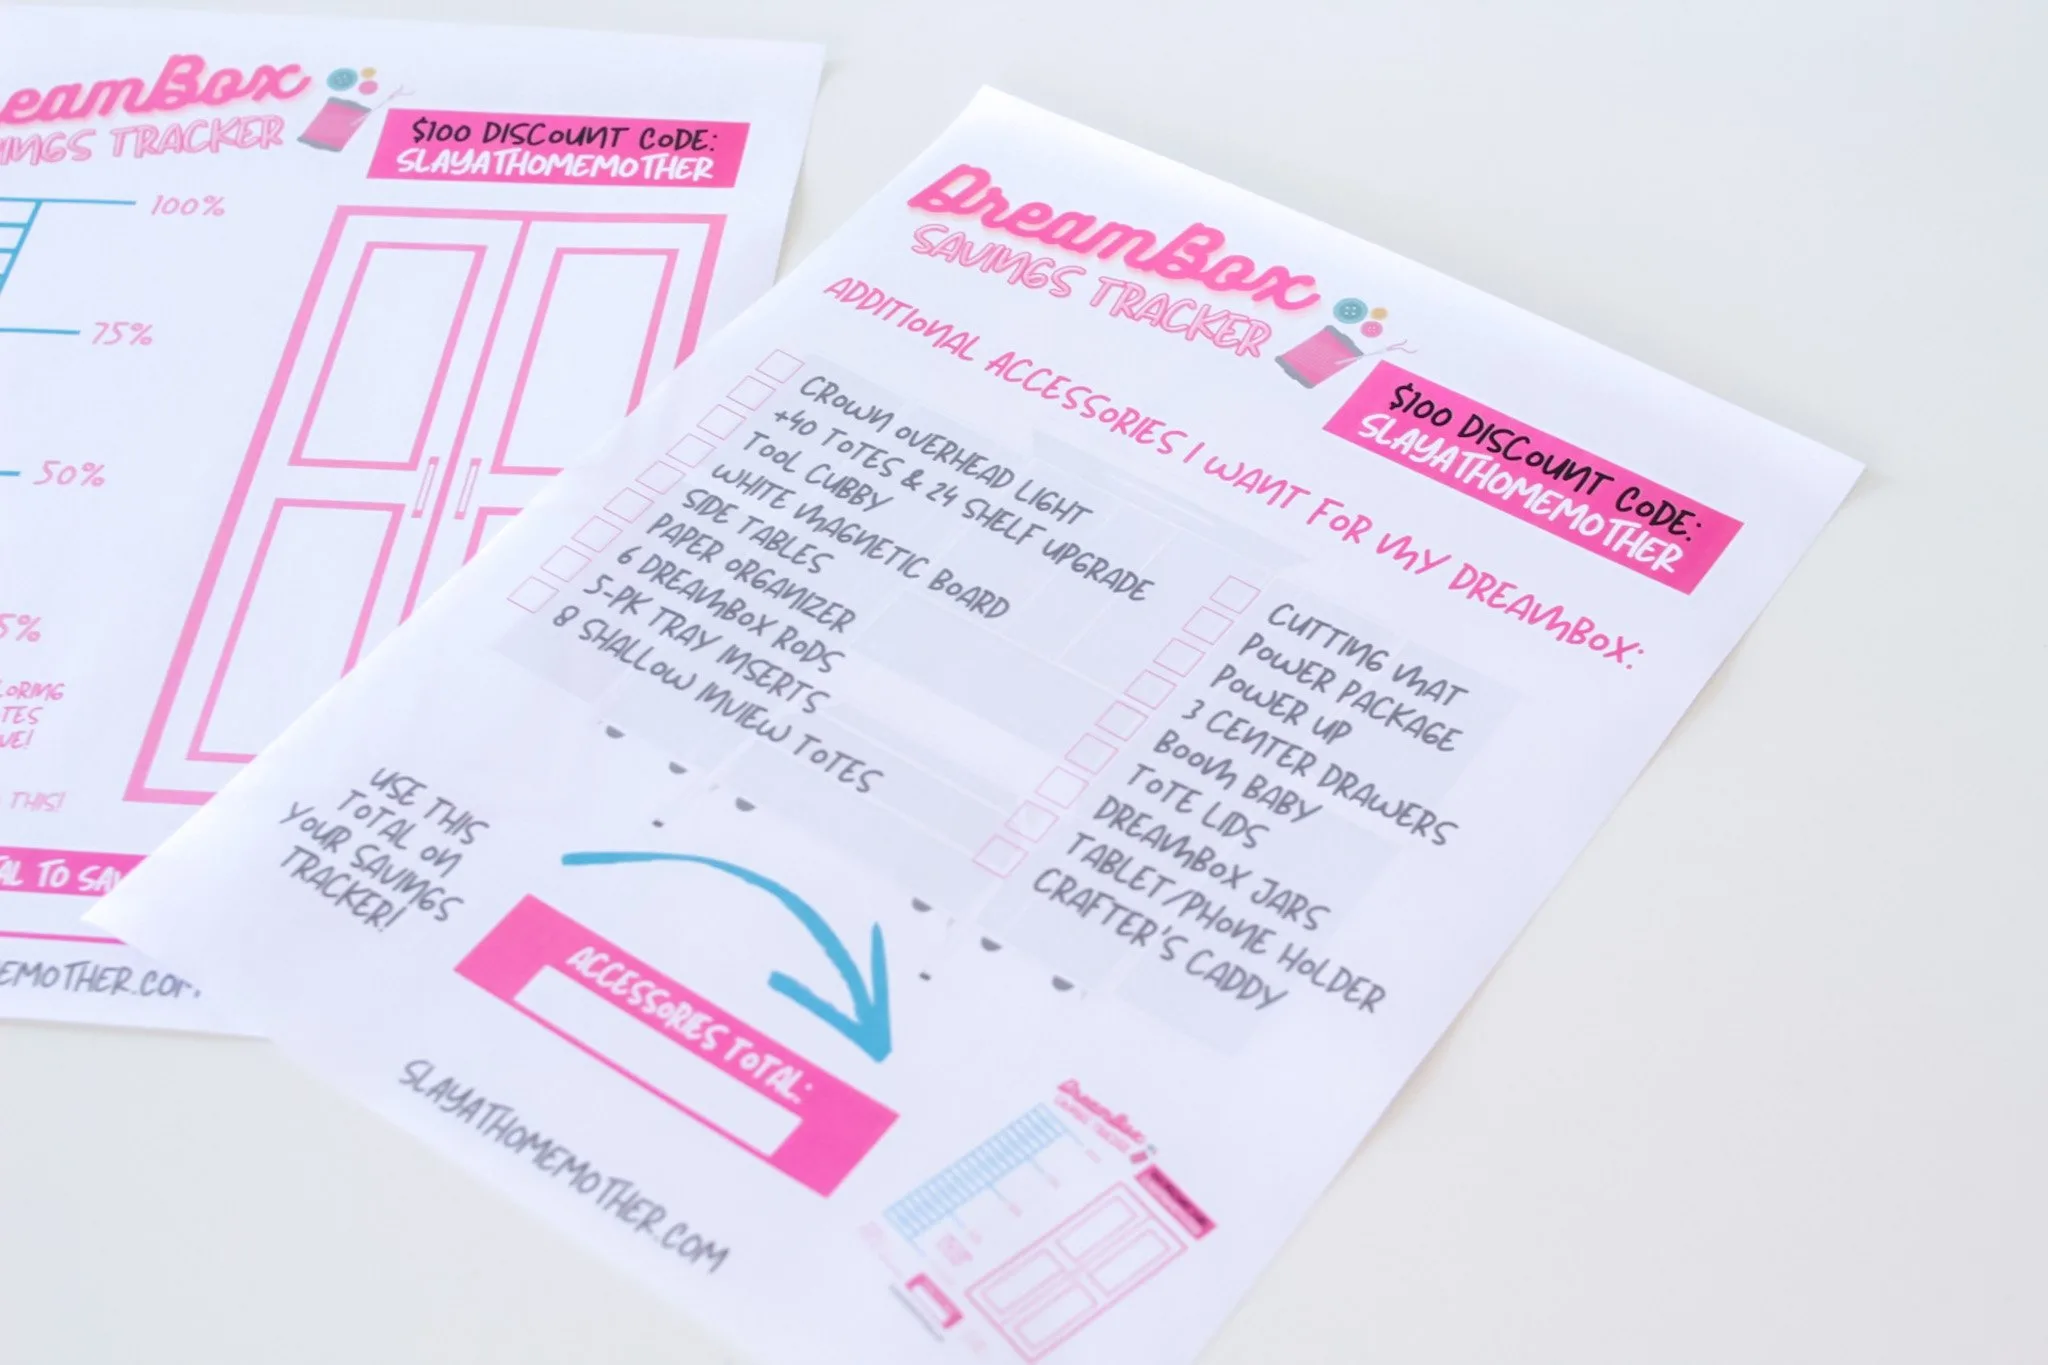 eamBox
INGS TRACKER
$100 DISCOUNT CODE:
SLAYATHOMEMOTHER
100%
75%
50%
5%
LORING
TES
VE!
THIS!
AL TO SAV
EMOTHER.COM
DreamBox
SAVINGS TRACKER
$100 DISCOUNT CODE:
SLAYATHOMEMOTHER
ADDITIONAL ACCESSORIES I WANT FOR MY DREAMBOX:
CROWN OVERHEAD LIGHT
+40 TOTES & 24 SHELF UPGRADE
TOOL CUBBY
WHITE MAGNETIC BOARD
SIDE TABLES
PAPER ORGANIZER
6 DREAMBOX RODS
5-PK TRAY INSERTS
8 SHALLOW INVIEW TOTES
CUTTING MAT
POWER PACKAGE
POWER UP
3 CENTER DRAWERS
BOOM BABY
TOTE LIDS
DREAMBOX JARS
TABLET/PHONE HOLDER
CRAFTER'S CADDY
USE THIS
TOTAL ON
YOUR SAVINGS
TRACKER!
ACCESSORIES TOTAL:
SLAYATHOMEMOTHER.COM
DreamBox